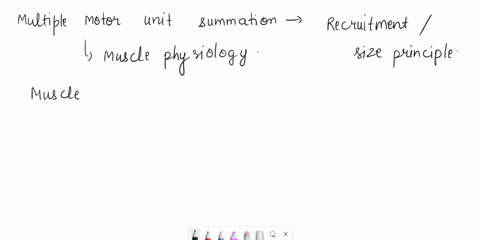 Multiple motor unit summation → Recruitment /
↳ Muscle physiology. size principle.
Muscle